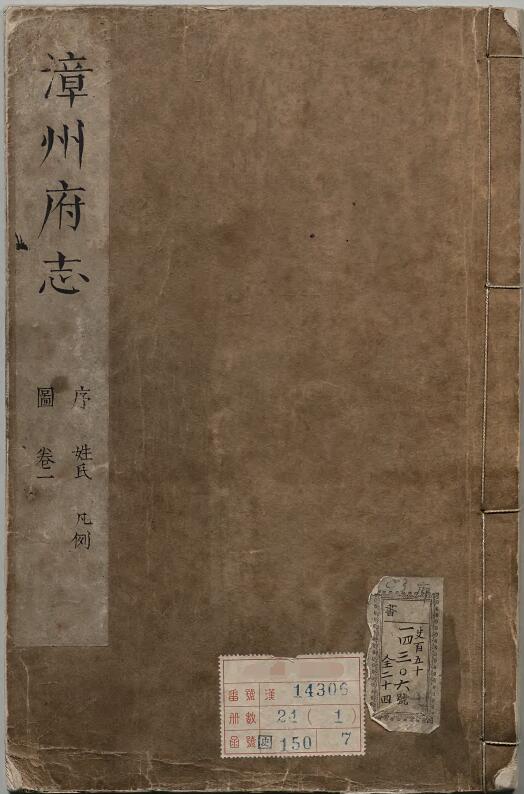 漳州府志
序 姓氏 凡例
圖 卷一
番號 漢 14306
册數 24 ( 1 )
函號 史 150 7
書
史百五十
一四三〇六號
全二十四